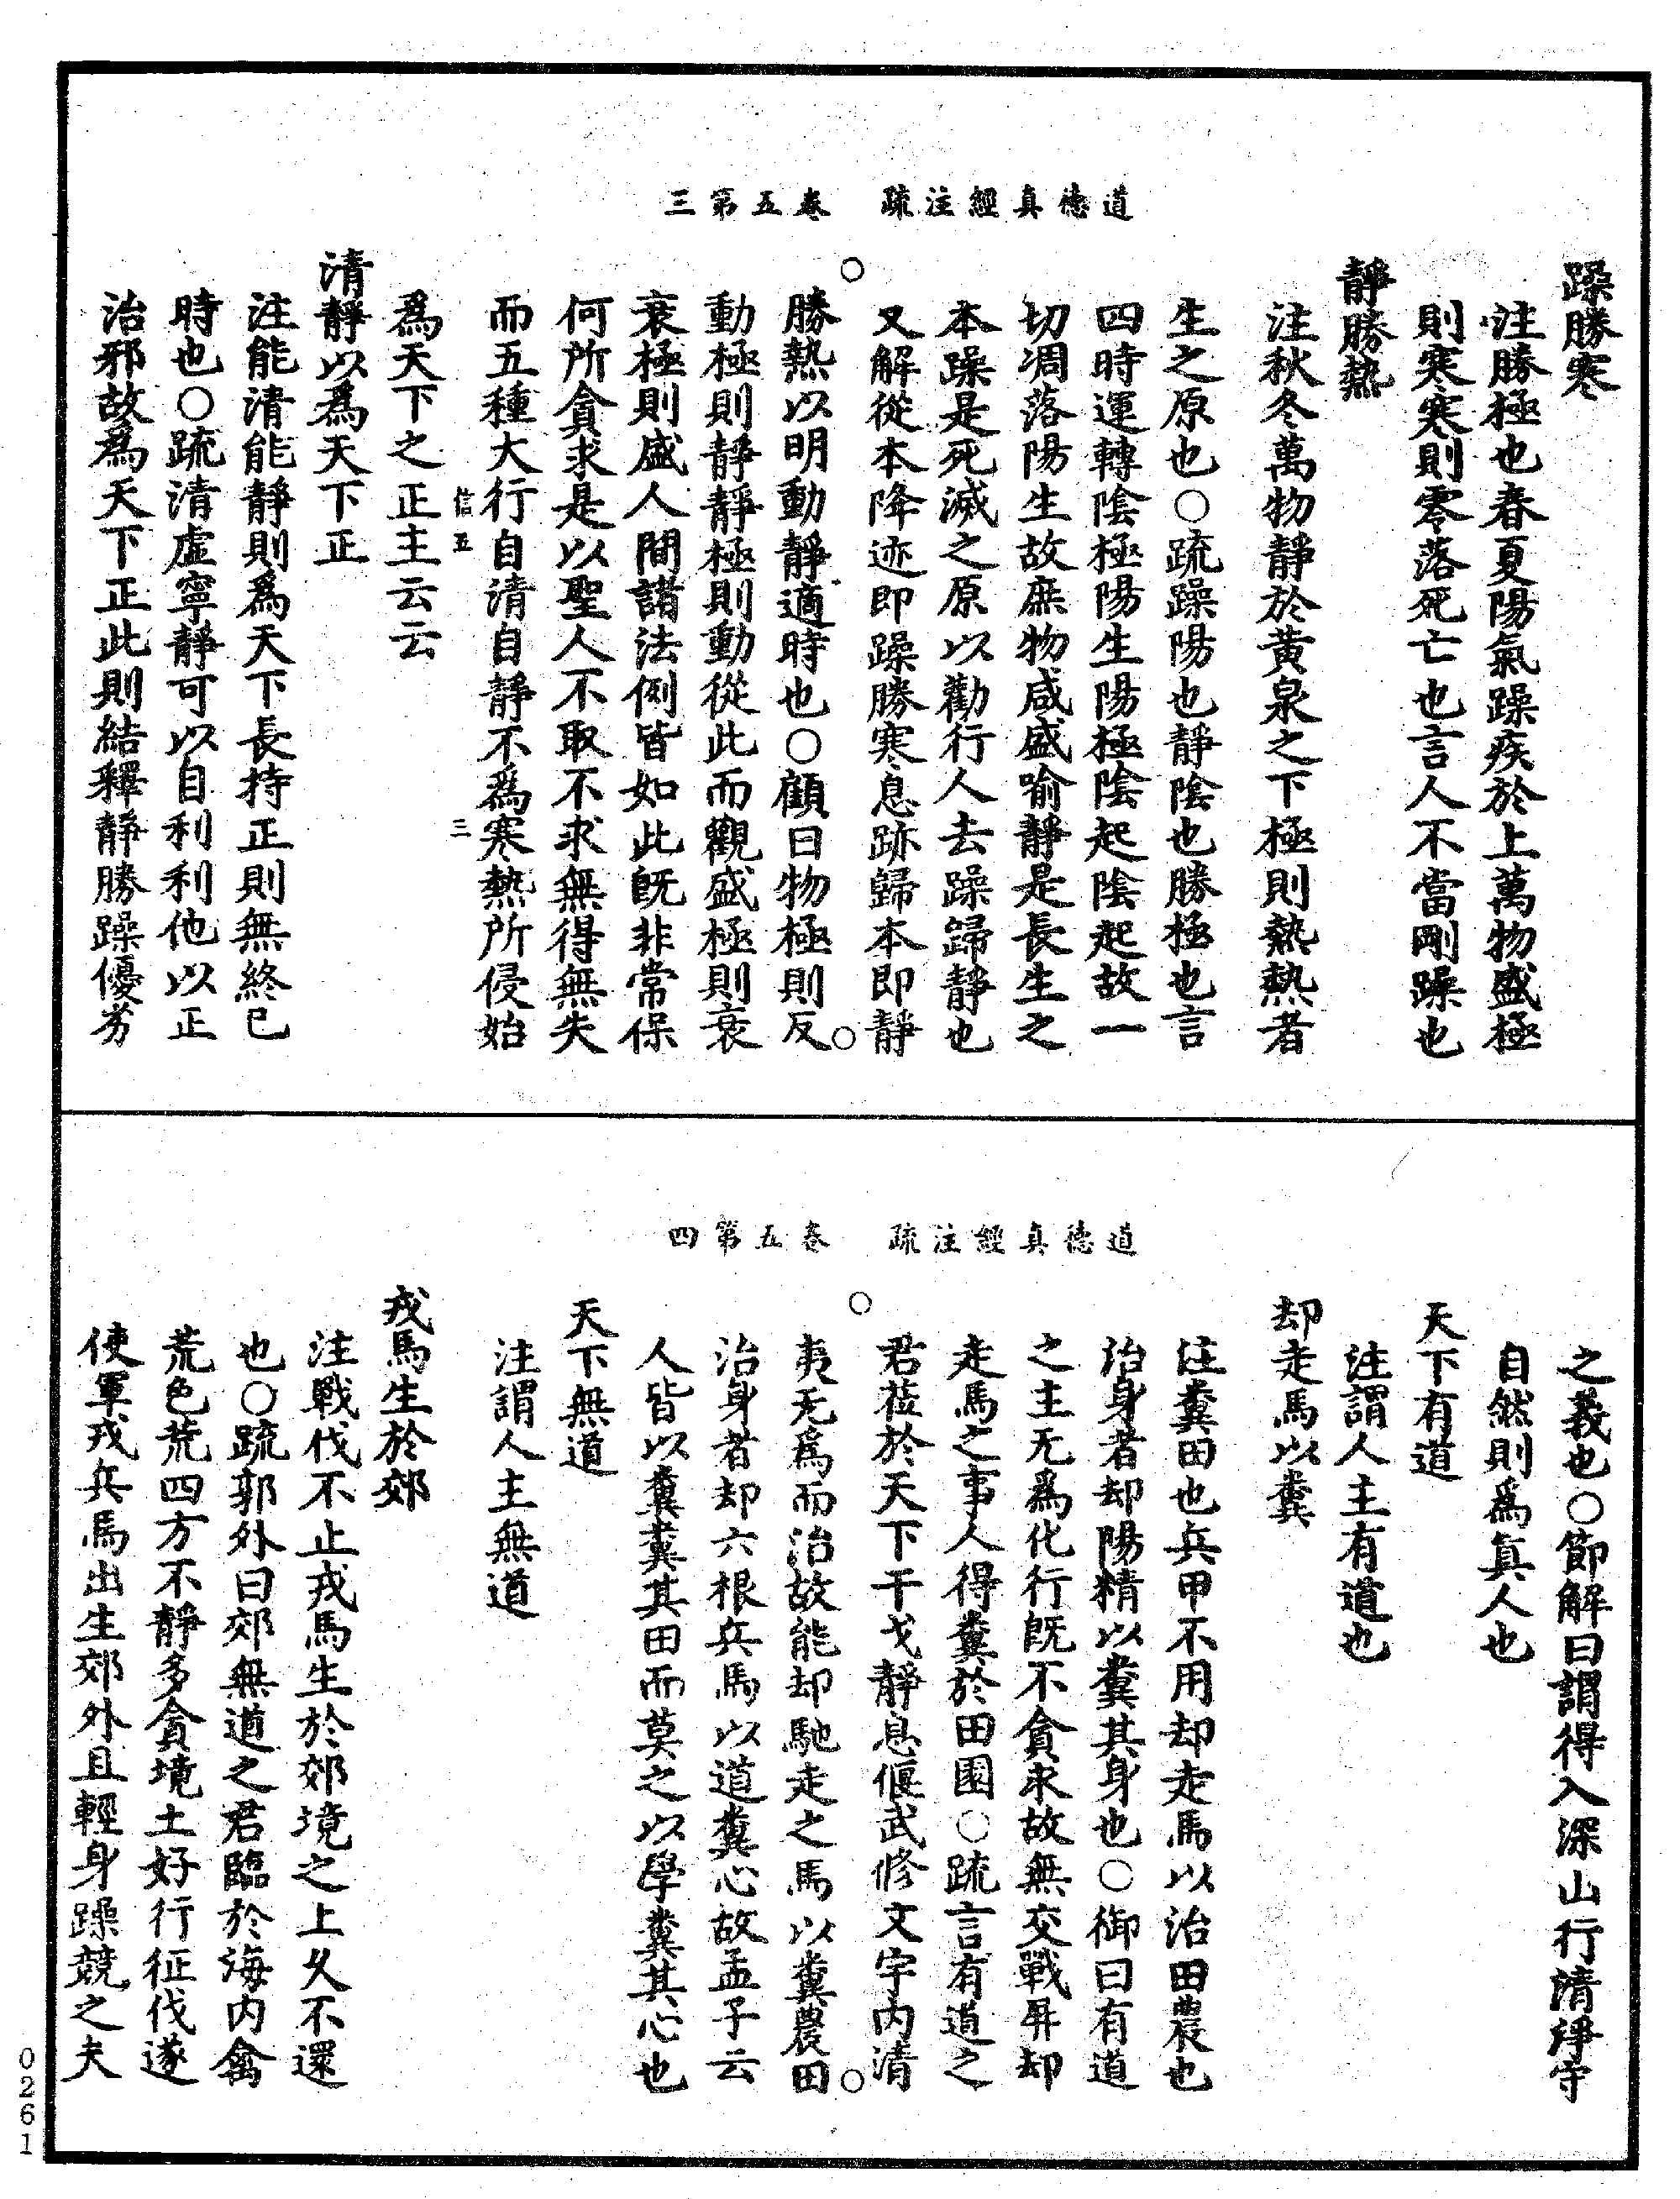 道德真經注疏　卷五第三
躁勝寒
注勝極也春夏陽氣躁疾於上萬物盛極
則寒寒則零落死亡也言人不當剛躁也
靜勝熱
注秋冬萬物靜於黃泉之下極則熱熱者
生之原也○疏躁陽也靜陰也勝極也言
四時運轉陰極陽生陽極陰起陰起故一
切凋落陽生故庶物咸盛喻靜是長生之
本躁是死滅之原以勸行人去躁歸靜也
又解從本降迹即躁勝寒息跡歸本即靜
勝熱以明動靜適時也○顧曰物極則反
動極則靜靜極則動從此而觀盛極則衰
衰極則盛人間諸法例皆如此既非常保
何所貪求是以聖人不取不求無得無失
而五種大行自清自靜不為寒熱所侵始
信五　三
為天下之正主云云
清靜以為天下正
注能清能靜則為天下長持正則無終已
時也○疏清虛寧靜可以自利利他以正
治邪故為天下正此則結釋靜勝躁優劣
道德真經注疏　卷五第四
之義也○節解曰謂得入深山行清淨守
自然則為真人也
天下有道
注謂人主有道也
却走馬以糞
注糞田也兵甲不用却走馬以治田農也
治身者却陽精以糞其身也○御曰有道
之主无為化行既不貪求故無交戰屏却
走馬之事人得糞於田園○疏言有道之
君莅於天下干戈靜息偃武修文宇內清
夷无為而治故能却馳走之馬以糞農田
治身者却六根兵馬以道糞心故孟子云
人皆以糞糞其田而莫之以學糞其心也
天下無道
注謂人主無道
戎馬生於郊
注戰伐不止戎馬生於郊境之上久不還
也○疏郭外曰郊無道之君臨於海內禽
荒色荒四方不靜多貪境土好行征伐遂
使軍戎兵馬出生郊外且輕身躁競之夫
0261